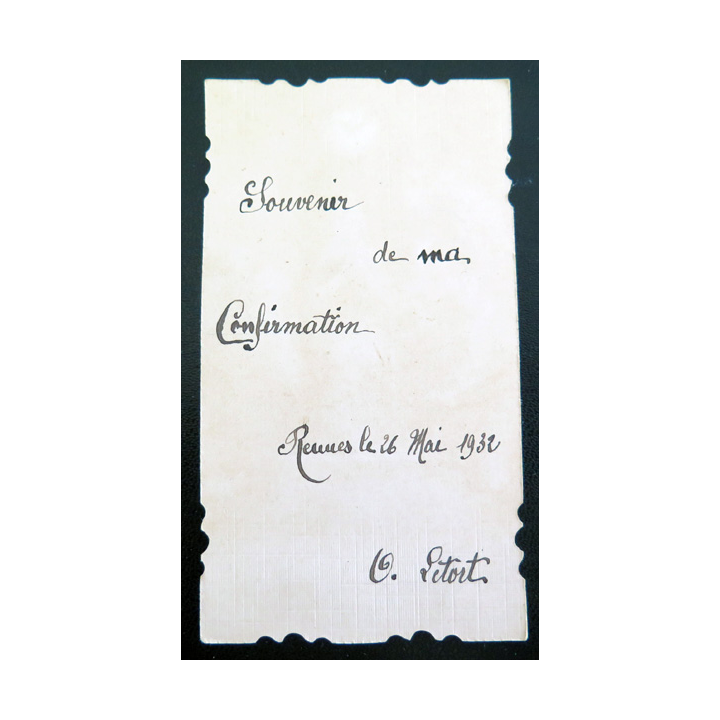 Souvenir
de ma
Confirmation
Rennes le 26 Mai 1932
O. Letort